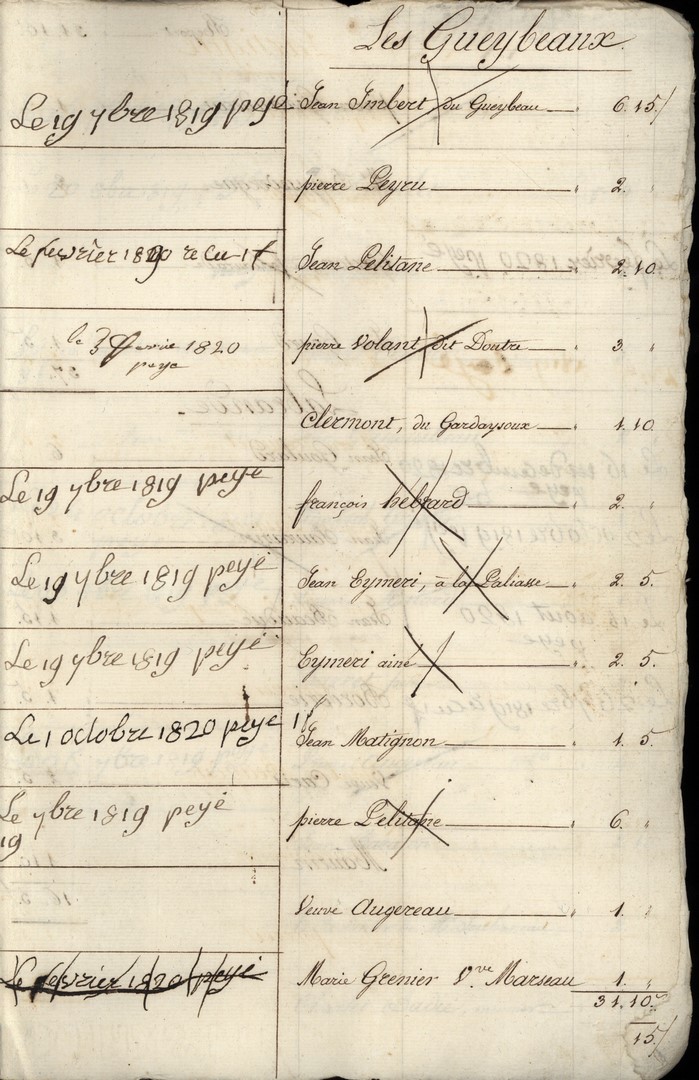 Les Gueybeaux.
Le 19 7bre 1819 peyé Jean Imbert du Gueybeau 6. 15/
pierre Peyru 2. "
Le fevrier 1820 recu 1f Jean Pelitane 2. 10.
le 3 fevrie 1820 pierre Volant dit Doutre 3 "
peye
Clermont, du Gardaysoux 1. 10
Le 19 7bre 1819 peyé françois hebrard 2. "
Le 19 7bre 1819 peyé Jean Eymeri, à la Paliasse 2. 5.
Le 19 7bre 1819 peyé Eymeri ainé 2. 5.
Le 1 octobre 1820 peye 1f Jean Matignon 1. 5.
Le 7bre 1819 peyé pierre Pelitane 6. "
19
Veuve Augereau 1. "
Le fevrier 1820 peyé Marie Grenier V.ve Marseau 1. "
31. 10.
15/